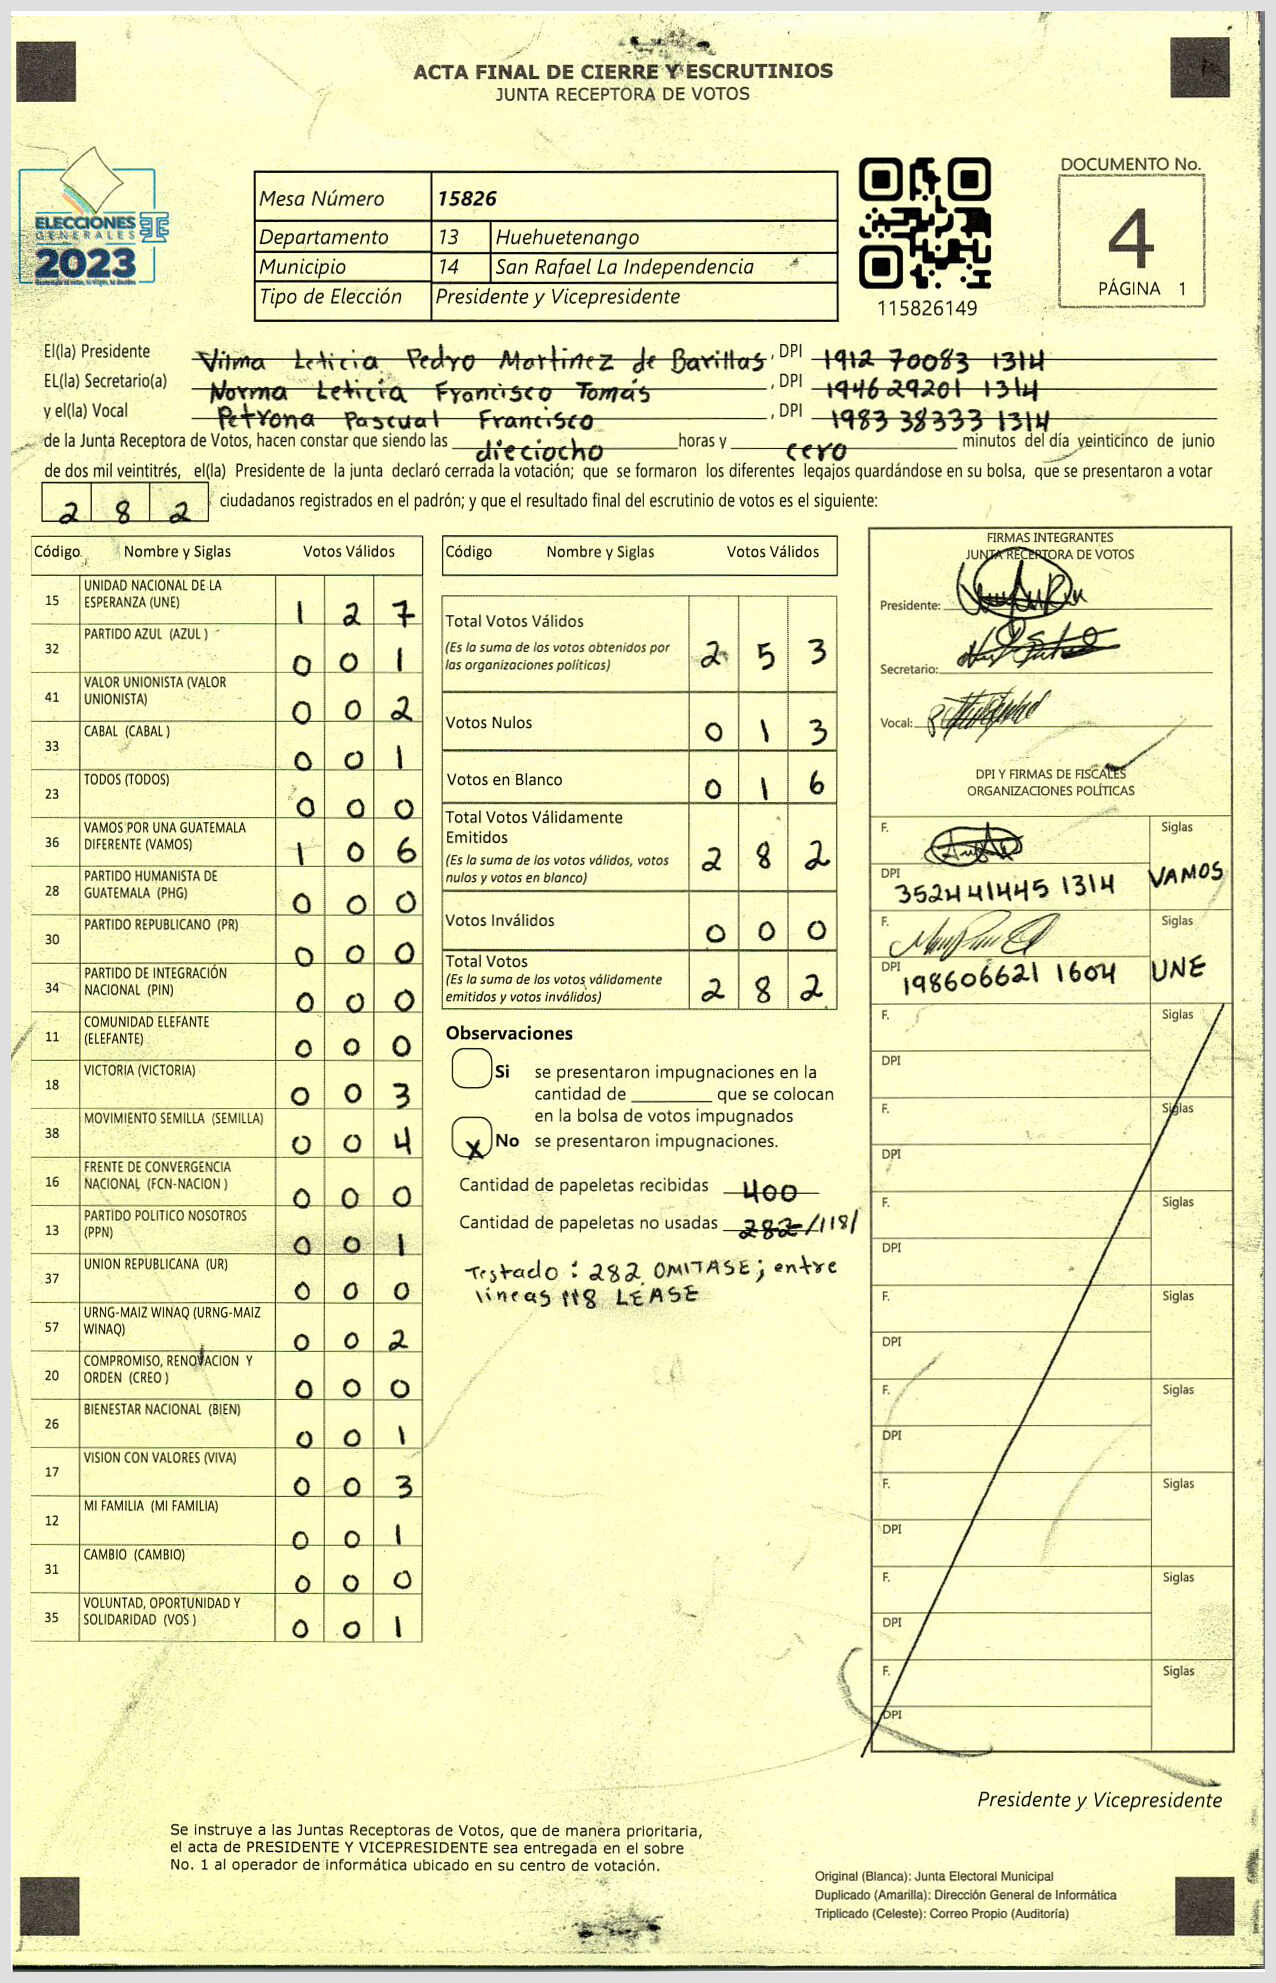 ACTA FINAL DE CIERRE Y ESCRUTINIOS
JUNTA RECEPTORA DE VOTOS
ELECCIONES
GENERALES
2023
Mesa Número 15826
Departamento 13 Huehuetenango
Municipio 14 San Rafael La Independencia
Tipo de Elección Presidente y Vicepresidente
115826149
DOCUMENTO No.
4
PÁGINA 1
El(la) Presidente Vilma Leticia Pedro Martinez de Barillas, DPI 1912 70083 1314
EL(la) Secretario(a) Norma Leticia Francisco Tomás, DPI 1946 29201 1314
y el(la) Vocal Petrona Pascual Francisco, DPI 1983 38333 1314
de la Junta Receptora de Votos, hacen constar que siendo las dieciocho horas y cero minutos del día veinticinco de junio
de dos mil veintitrés, el(la) Presidente de la junta declaró cerrada la votación; que se formaron los diferentes legajos guardándose en su bolsa, que se presentaron a votar
2 8 2 ciudadanos registrados en el padrón; y que el resultado final del escrutinio de votos es el siguiente:
Código Nombre y Siglas Votos Válidos
15 UNIDAD NACIONAL DE LA ESPERANZA (UNE) 1 2 7
32 PARTIDO AZUL (AZUL ) 0 0 1
41 VALOR UNIONISTA (VALOR UNIONISTA) 0 0 2
33 CABAL (CABAL ) 0 0 1
23 TODOS (TODOS) 0 0 0
36 VAMOS POR UNA GUATEMALA DIFERENTE (VAMOS) 1 0 6
28 PARTIDO HUMANISTA DE GUATEMALA (PHG) 0 0 0
30 PARTIDO REPUBLICANO (PR) 0 0 0
34 PARTIDO DE INTEGRACIÓN NACIONAL (PIN) 0 0 0
11 COMUNIDAD ELEFANTE (ELEFANTE) 0 0 0
18 VICTORIA (VICTORIA) 0 0 3
38 MOVIMIENTO SEMILLA (SEMILLA) 0 0 4
16 FRENTE DE CONVERGENCIA NACIONAL (FCN-NACION ) 0 0 0
13 PARTIDO POLITICO NOSOTROS (PPN) 0 0 1
37 UNION REPUBLICANA (UR) 0 0 0
57 URNG-MAIZ WINAQ (URNG-MAIZ WINAQ) 0 0 2
20 COMPROMISO, RENOVACION Y ORDEN (CREO ) 0 0 0
26 BIENESTAR NACIONAL (BIEN) 0 0 1
17 VISION CON VALORES (VIVA) 0 0 3
12 MI FAMILIA (MI FAMILIA) 0 0 1
31 CAMBIO (CAMBIO) 0 0 0
35 VOLUNTAD, OPORTUNIDAD Y SOLIDARIDAD (VOS ) 0 0 1
Código Nombre y Siglas Votos Válidos
Total Votos Válidos 2 5 3
(Es la suma de los votos obtenidos por
las organizaciones políticas)
Votos Nulos 0 1 3
Votos en Blanco 0 1 6
Total Votos Válidamente
Emitidos 2 8 2
(Es la suma de los votos válidos, votos
nulos y votos en blanco)
Votos Inválidos 0 0 0
Total Votos 2 8 2
(Es la suma de los votos válidamente
emitidos y votos inválidos)
Observaciones
Si se presentaron impugnaciones en la
cantidad de ________ que se colocan
en la bolsa de votos impugnados
X No se presentaron impugnaciones.
Cantidad de papeletas recibidas 400
Cantidad de papeletas no usadas 282 /118/
Testado: 282 OMITASE; entre
lineas 118 LEASE
FIRMAS INTEGRANTES
JUNTA RECEPTORA DE VOTOS
Presidente:
Secretario:
Vocal:
DPI Y FIRMAS DE FISCALES
ORGANIZACIONES POLÍTICAS
F. Siglas
DPI 352441445 1314 VAMOS
F. Siglas
DPI 198606621 1604 UNE
F. Siglas
DPI
F. Siglas
DPI
F. Siglas
DPI
F. Siglas
DPI
F. Siglas
DPI
F. Siglas
DPI
F. Siglas
DPI
F. Siglas
DPI
Presidente y Vicepresidente
Se instruye a las Juntas Receptoras de Votos, que de manera prioritaria,
el acta de PRESIDENTE Y VICEPRESIDENTE sea entregada en el sobre
No. 1 al operador de informática ubicado en su centro de votación.
Original (Blanca): Junta Electoral Municipal
Duplicado (Amarilla): Dirección General de Informática
Triplicado (Celeste): Correo Propio (Auditoría)